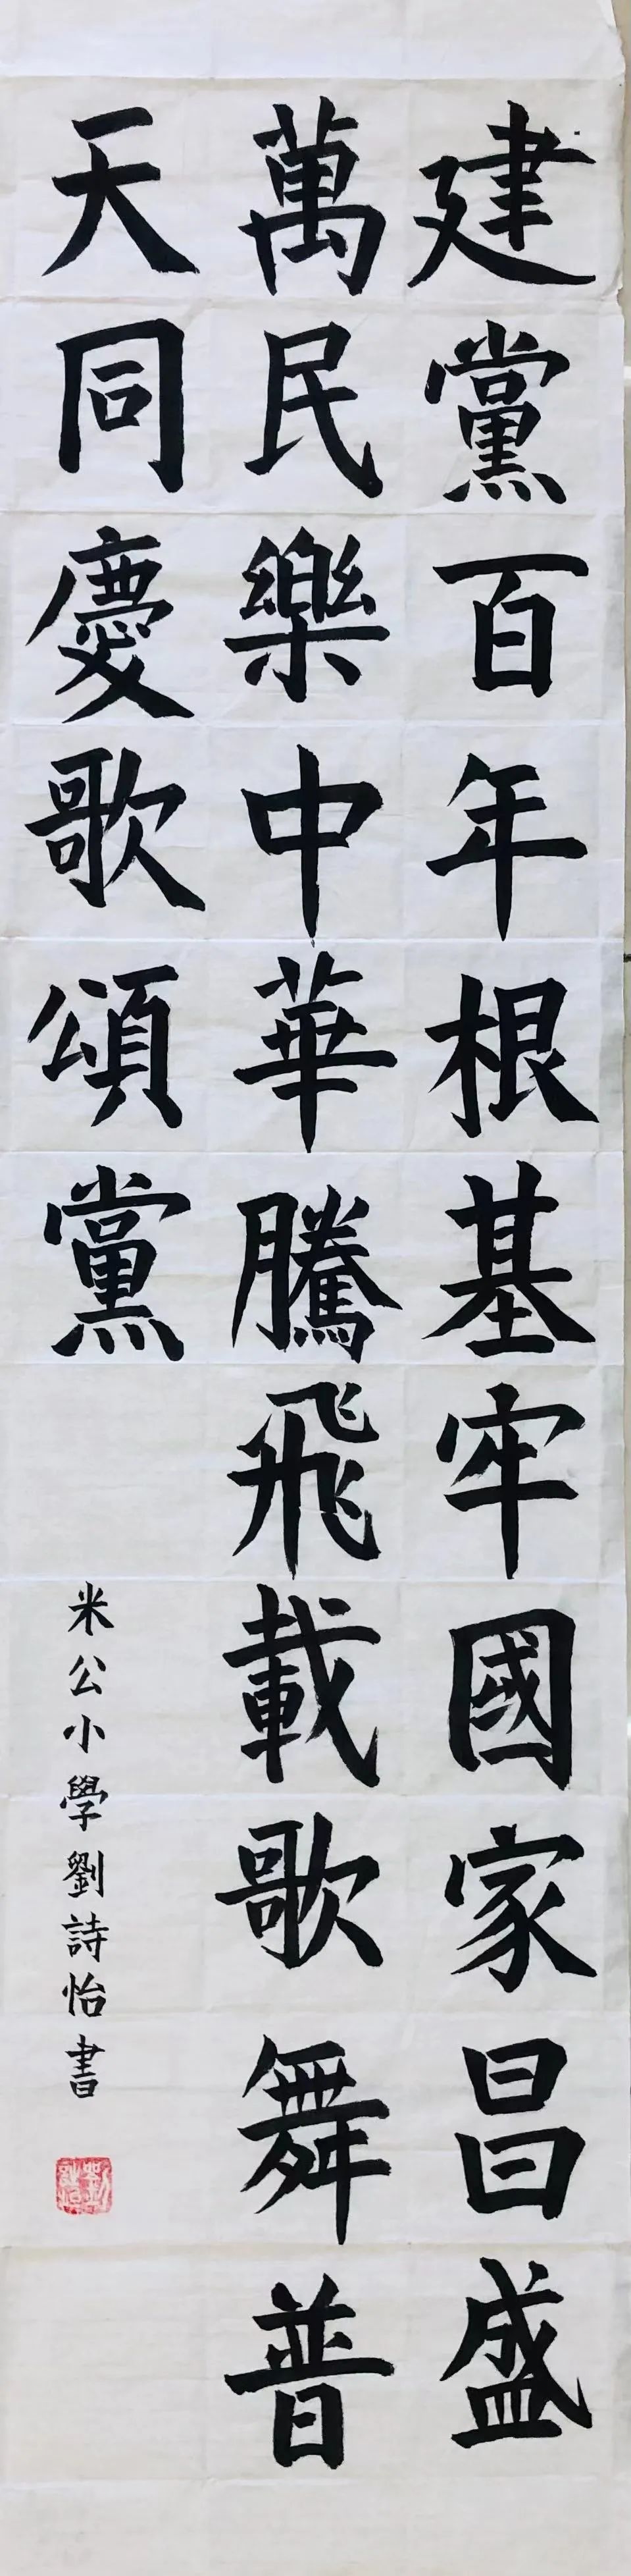 建黨百年根基牢國家昌盛
萬民樂中華騰飛載歌舞普
天同慶歌頌黨
米公小學劉詩怡書
劉詩怡